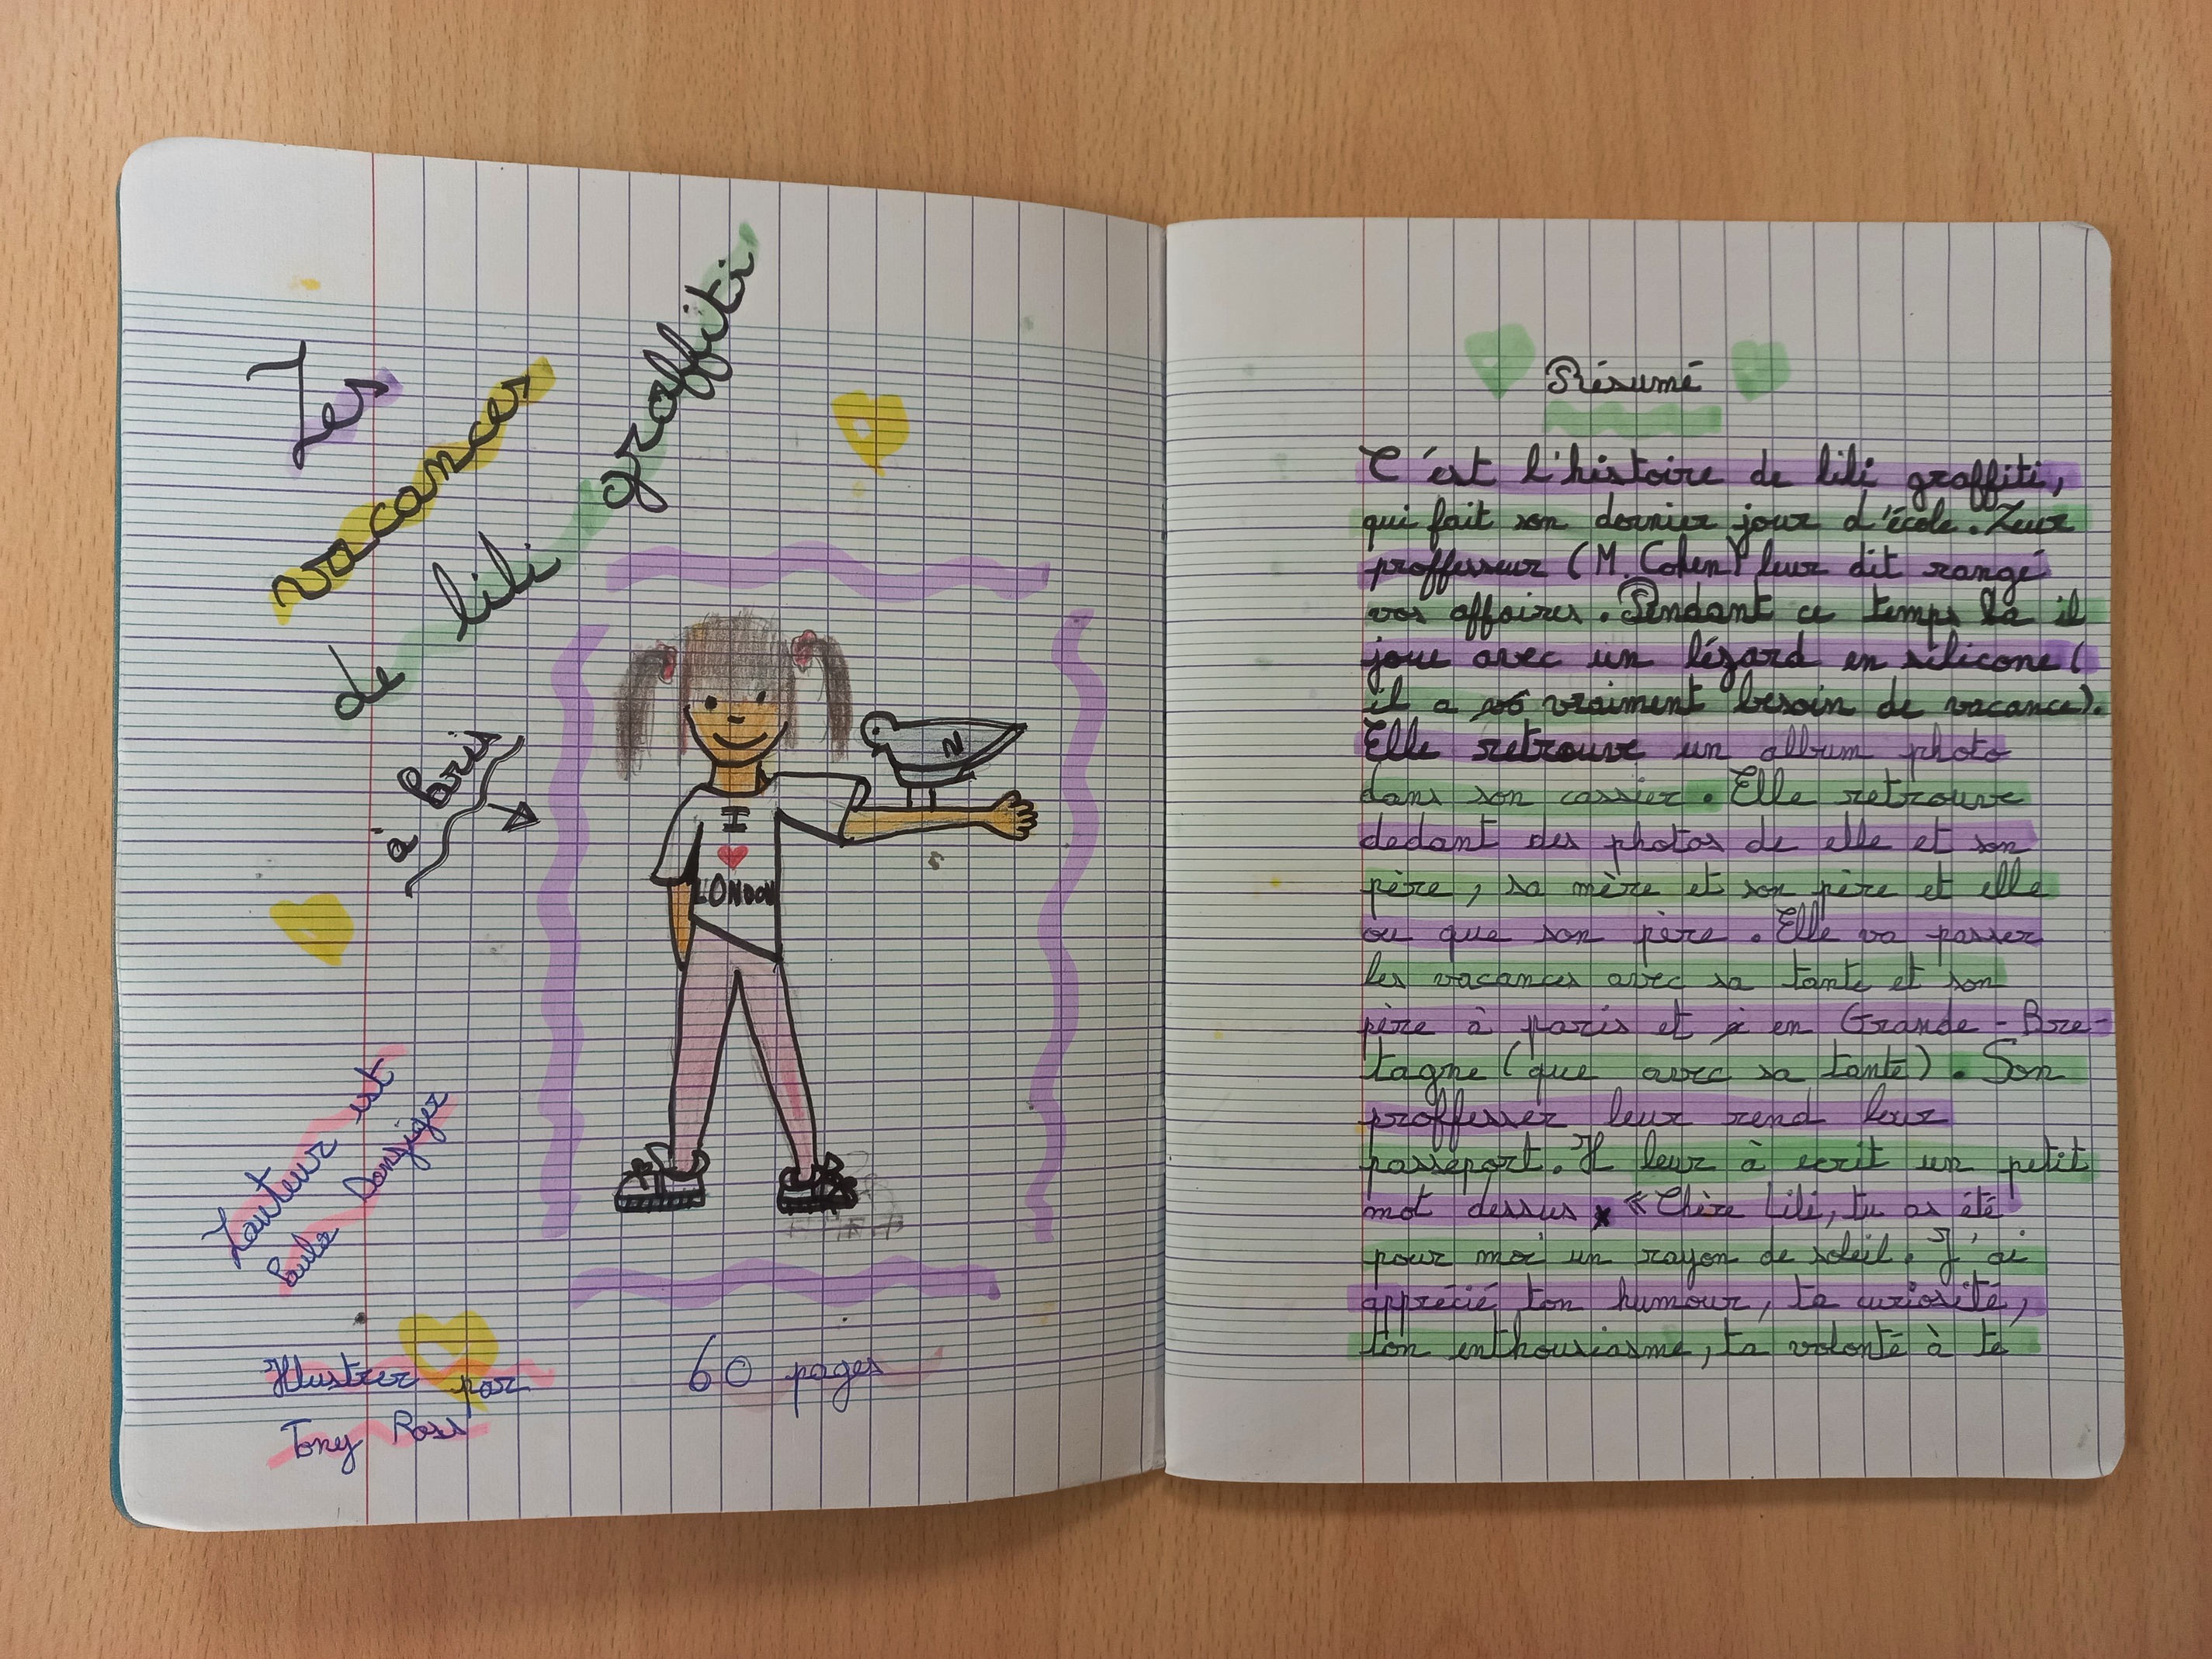 Les
vacances
de lili graffiti
à Paris
I
LONDON
N
L'auteur est
Paula Danziger
Illustrer par
Tony Ross
60 pages
Résumé
C'est l'histoire de lili graffiti,
qui fait son dernier jour d'école. Leur
proffesseur (M. Cohen) leur dit rangé
vos affaires. Pendant ce temps la il
joue avec un lézard en silicone (
il a vraiment besoin de vacance).
Elle retrouve un album photo
dans son cassier. Elle retrouve
dedant des photos de elle et son
père, sa mère et son père et elle
ou que son père. Elle va passer
les vacances avec sa tante et son
père à paris et en Grande-Bre-
tagne (que avec sa tante). Son
proffesser leur rend leur
passeport. Il leur à ecrit un petit
mot dessus « Chère Lili, tu as été
pour moi un rayon de soleil. J'ai
apprécié ton humour, ta curiosité,
ton enthousiasme, ta volonté à te